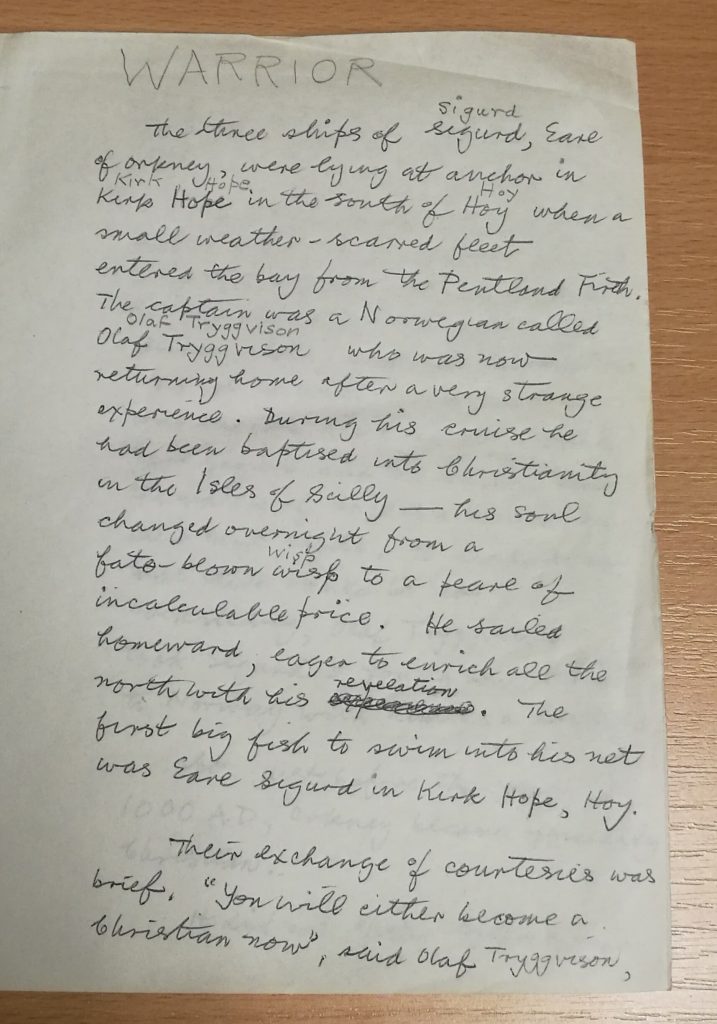 WARRIOR
Sigurd
The three ships of Sigurd, Earl
of Orkney, were lying at anchor in
Kirk Hope Hoy
Kirk Hope in the south of Hoy when a
small weather-scarred fleet
entered the bay from the Pentland Firth.
The captain was a Norwegian called
Olaf Tryggvison
Olaf Tryggvison who was now
returning home after a very strange
experience. During his cruise he
had been baptised into Christianity
in the Isles of Scilly — his soul
changed overnight from a
wisp
fate-blown wisp to a pearl of
incalculable price. He sailed
homeward, eager to enrich all the
revelation
north with his . The
first big fish to swim into his net
was Earl Sigurd in Kirk Hope, Hoy.
Their exchange of courtesies was
brief. "You will either become a
Christian now", said Olaf Tryggvison,